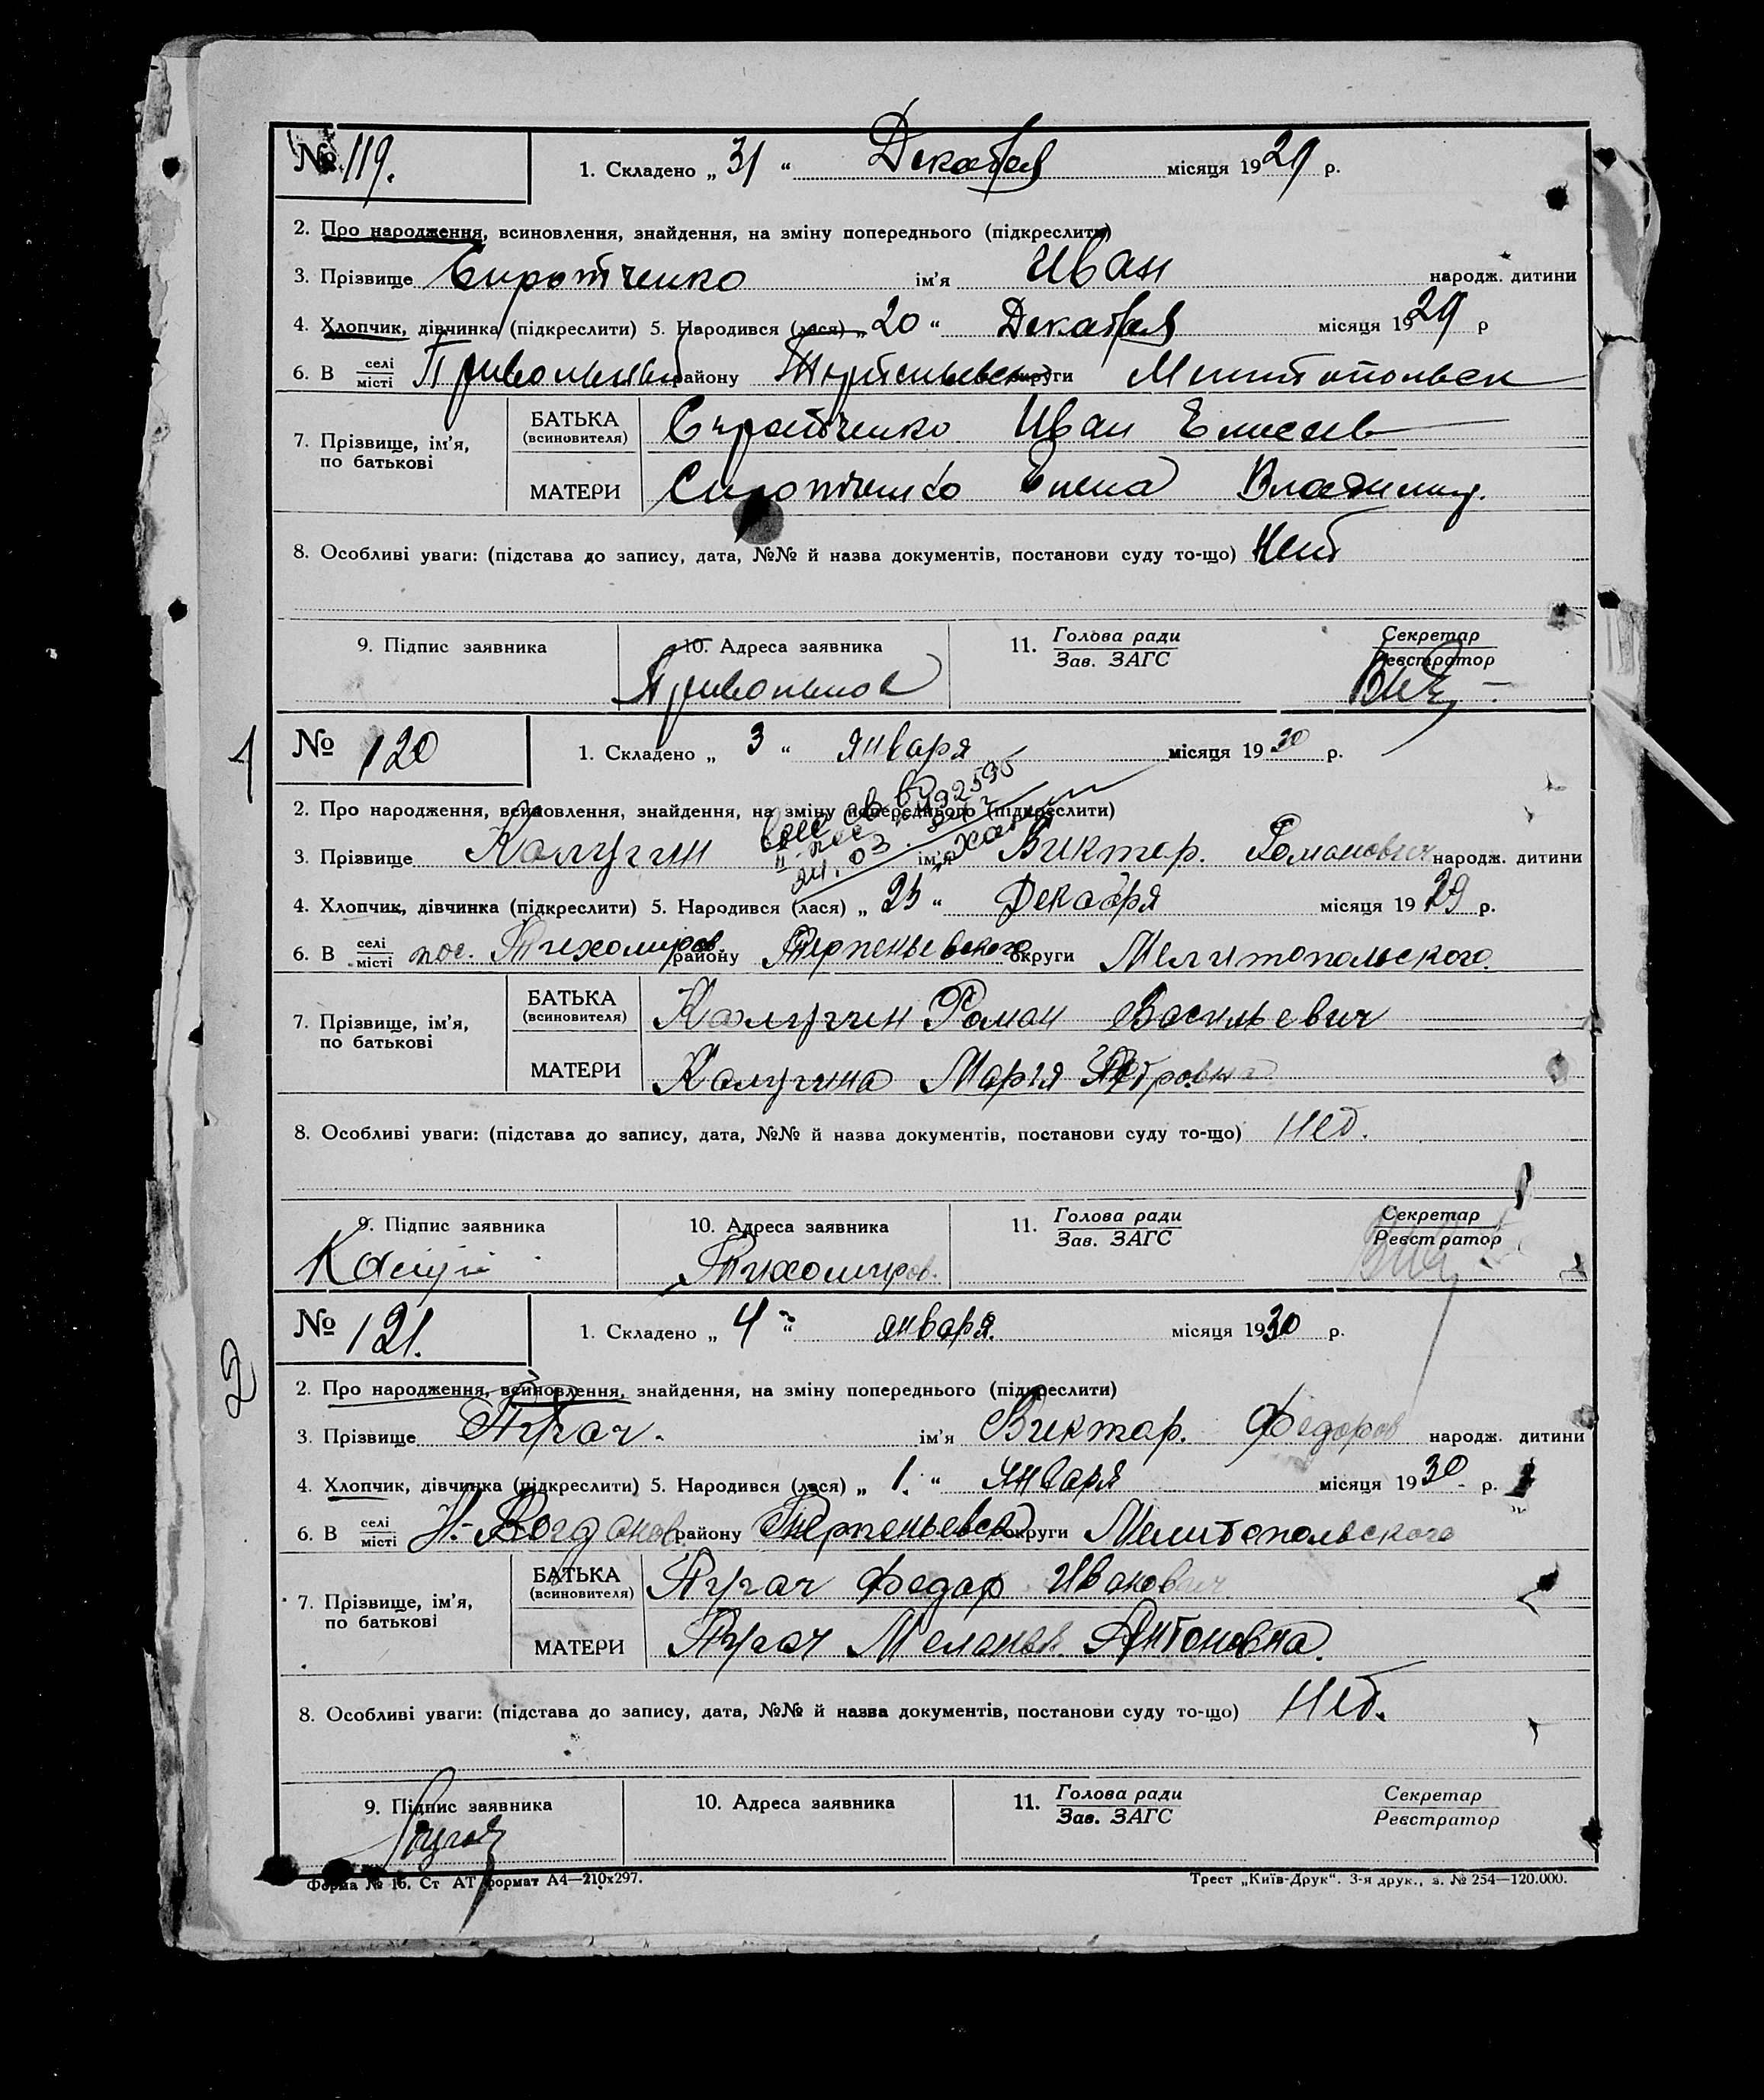 № 119.
1. Складено „ 31 “ Декабря місяця 1929 р.
2. Про народження, всиновлення, знайдення, на зміну попереднього (підкреслити)
3. Прізвище Сиротченко ім'я Иван народж. дитини
4. Хлопчик, дівчинка (підкреслити) 5. Народився (лася) „ 20 “ Декабря місяця 1929 р
6. В селі місті району округи
7. Прізвище, ім'я, по батькові
БАТЬКА (всиновителя) Сиротченко Иван Елисеев
МАТЕРИ Сиротченко Елена Владимир.
8. Особливі уваги: (підстава до запису, дата, №№ й назва документів, постанови суду то-що) Нет
9. Підпис заявника 10. Адреса заявника 11. Голова ради Зав. ЗАГС Секретар Реєстратор
1
№ 120
1. Складено „ 3 “ января місяця 1930 р.
2. Про народження, всиновлення, знайдення, на зміну попереднього (підкреслити)
3. Прізвище Калугин ім'я Виктор. Романович народж. дитини
4. Хлопчик, дівчинка (підкреслити) 5. Народився (лася) „ 25 “ Декабря місяця 1929 р.
6. В селі місті пос. Тихомиров. району Терпеньевского округи Мелитопольского.
7. Прізвище, ім'я, по батькові
БАТЬКА (всиновителя) Калугин Роман Васильевич
МАТЕРИ Калугина Мария Петровна
8. Особливі уваги: (підстава до запису, дата, №№ й назва документів, постанови суду то-що) Нет.
9. Підпис заявника 10. Адреса заявника 11. Голова ради Зав. ЗАГС Секретар Реєстратор
Тихомиров.
2
№ 121.
1. Складено „ 4 “ января. місяця 1930 р.
2. Про народження, всиновлення, знайдення, на зміну попереднього (підкреслити)
3. Прізвище Пугач. ім'я Виктор. Федоров народж. дитини
4. Хлопчик, дівчинка (підкреслити) 5. Народився (лася) „ 1. “ января місяця 1930 р.
6. В селі місті Н.-Богданов. району Терпеньевск округи Мелитопольского
7. Прізвище, ім'я, по батькові
БАТЬКА (всиновителя) Пугач Федор Иванович
МАТЕРИ Пугач Мелания Антоновна.
8. Особливі уваги: (підстава до запису, дата, №№ й назва документів, постанови суду то-що) Нет.
9. Підпис заявника 10. Адреса заявника 11. Голова ради Зав. ЗАГС Секретар Реєстратор
Пугач
Форма № 16. Ст АТ формат А4—210х297.
Трест „Київ-Друк“. 3-я друк., з. № 254—120.000.